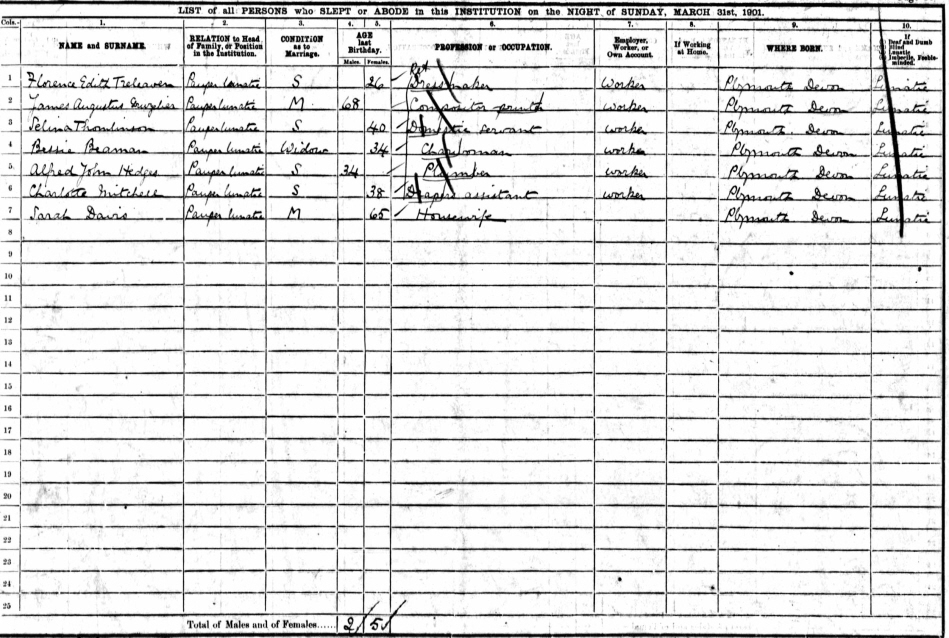 LIST of all PERSONS who SLEPT or ABODE in this INSTITUTION on the NIGHT of SUNDAY, MARCH 31st, 1901.
Cols.- 1. 2. 3. 4. 5. 6. 7. 8. 9. 10.
NAME and SURNAME. RELATION to Head of Family, or Position in the Institution. CONDITION as to Marriage. AGE last Birthday. Males. Females. PROFESSION or OCCUPATION. Employer, Worker, or Own Account. If Working at Home. WHERE BORN. If Deaf and Dumb Blind Lunatic Imbecile, Feeble-minded.
1 Florence Edith Treleaven Pauper lunatic S 26 Dressmaker Worker Plymouth Devon Lunatic
2 James Augustus Pauper lunatic M 68 Compositor worker Plymouth Devon Lunatic
3 Selina Thomlinson Pauper lunatic S 40 Domestic servant worker Plymouth Devon Lunatic
4 Bessie Beaman Pauper lunatic Widow 34 Charwoman worker Plymouth Devon Lunatic
5 Alfred John Hedges Pauper lunatic S 34 Plumber worker Plymouth Devon Lunatic
6 Charlotte Mitchell Pauper lunatic S 38 Drapers assistant worker Plymouth Devon Lunatic
7 Sarah Davis Pauper lunatic M 65 Housewife Plymouth Devon Lunatic
8
9
10
11
12
13
14
15
16
17
18
19
20
21
22
23
24
25
Total of Males and of Females...... 2 5